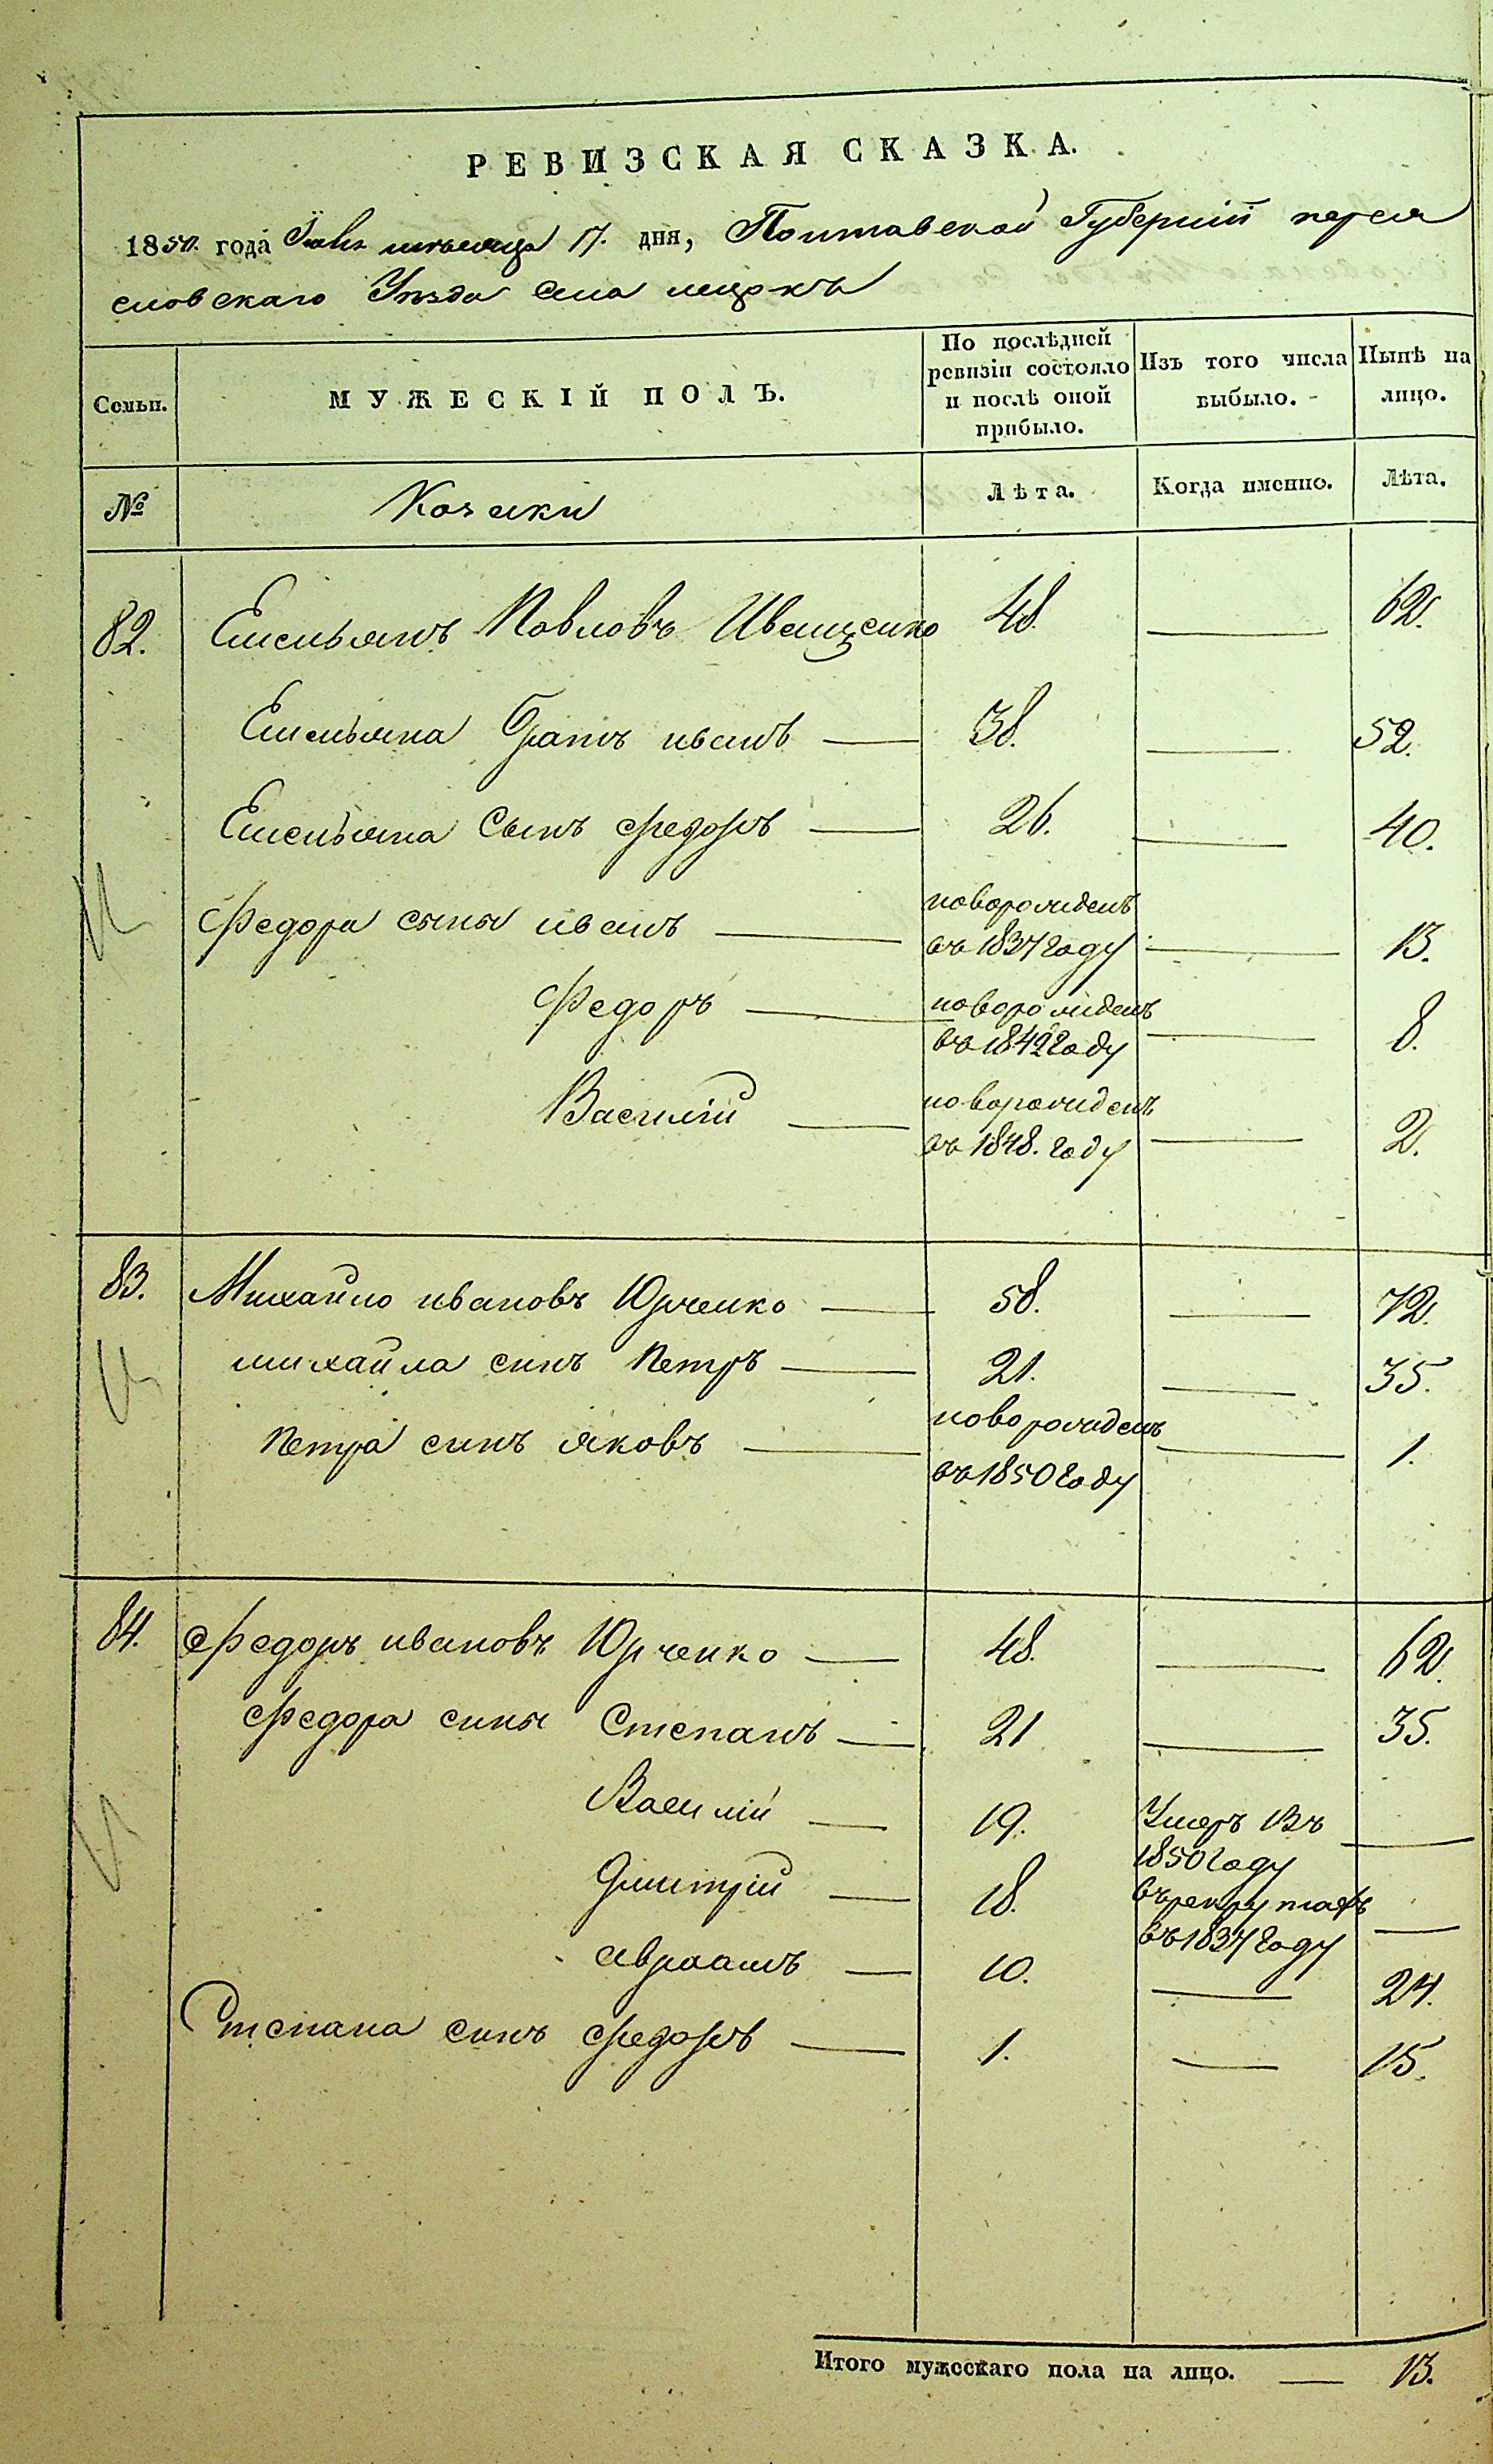 РЕВИЗСКАЯ СКАЗКА.
1850. года мѣсяца 17. дня, Полтавской Губерніи переяс
ловскаго Уѣзда села
Семьи. МУЖЕСКІЙ ПОЛЪ. По послѣдней ревизіи состояло и послѣ оной прибыло. Изъ того числа выбыло. Нынѣ на лицо.
№ Козаки Лѣта. Когда именно. Лѣта.
82. Емельянъ Павловъ Иващенко 48. — 62.
Емельяна братъ иванъ — 38. — 52.
Емельяна Сынъ федоръ — 26. — 40.
Федора сыны иванъ — новорожденъ въ 1837 году — 13.
Федоръ — новорожденъ въ 1842 году — 8.
Василій — новорожденъ въ 1848. году — 2.
83. Михайло ивановъ Юрченко — 58. — 72.
михайла синъ Петръ — 21. — 35.
Петра синъ яковъ — новорожденъ въ 1850 году — 1.
84. Федоръ ивановъ Юрченко — 48. — 62.
Федора сины Степанъ — 21 — 35.
Василій — 19. Умеръ Въ 1850 году —
Дмитрій — 18. въ рекрутахъ въ 1837 году —
авраамъ — 10. — 24.
Степана синъ федоръ — 1. — 15.
Итого мужескаго пола на лицо. — 13.